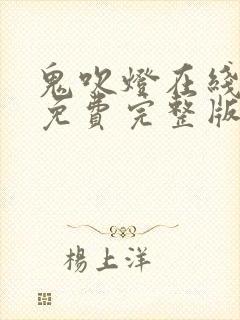 鬼吹燈在綫
免費完整版
楊上洋